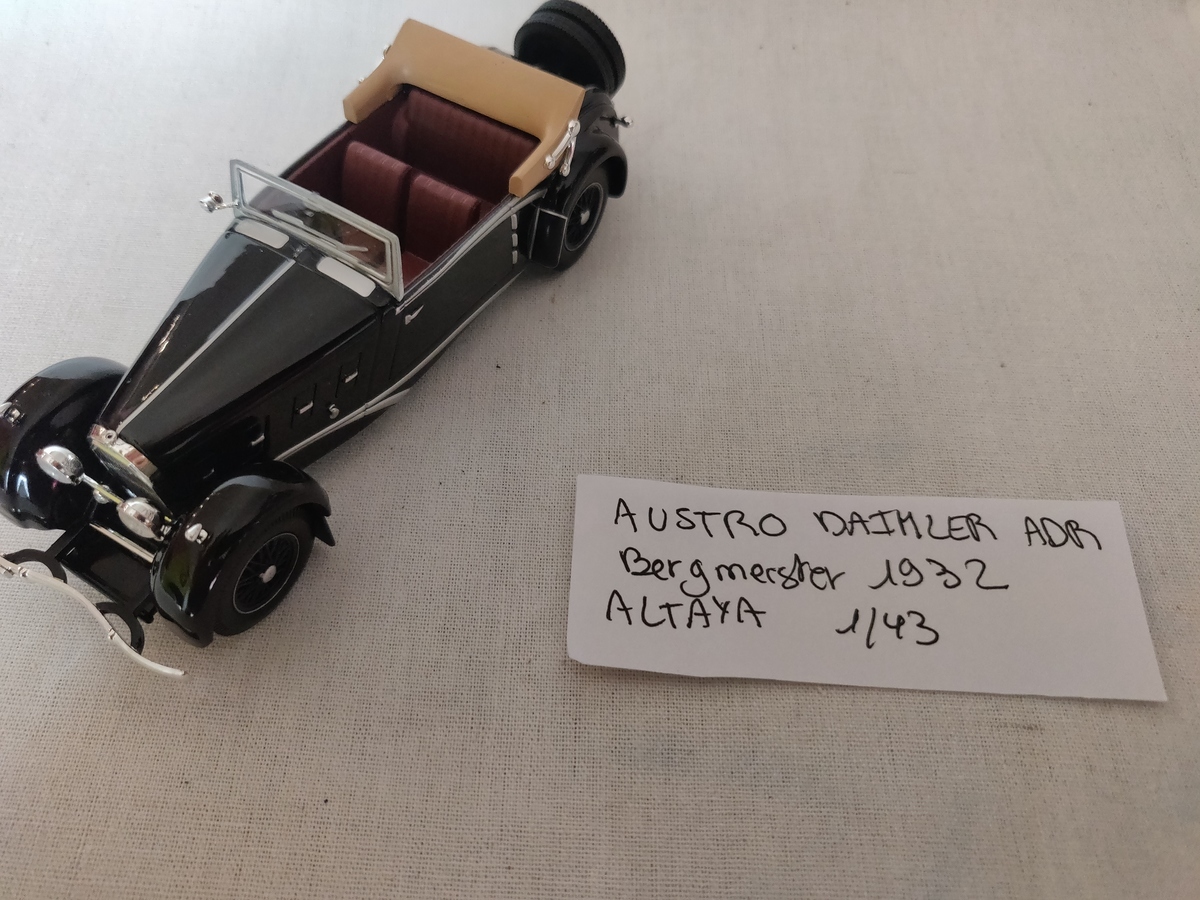 AUSTRO DAIMLER ADR
Bergmeister 1932
ALTAYA 1/43